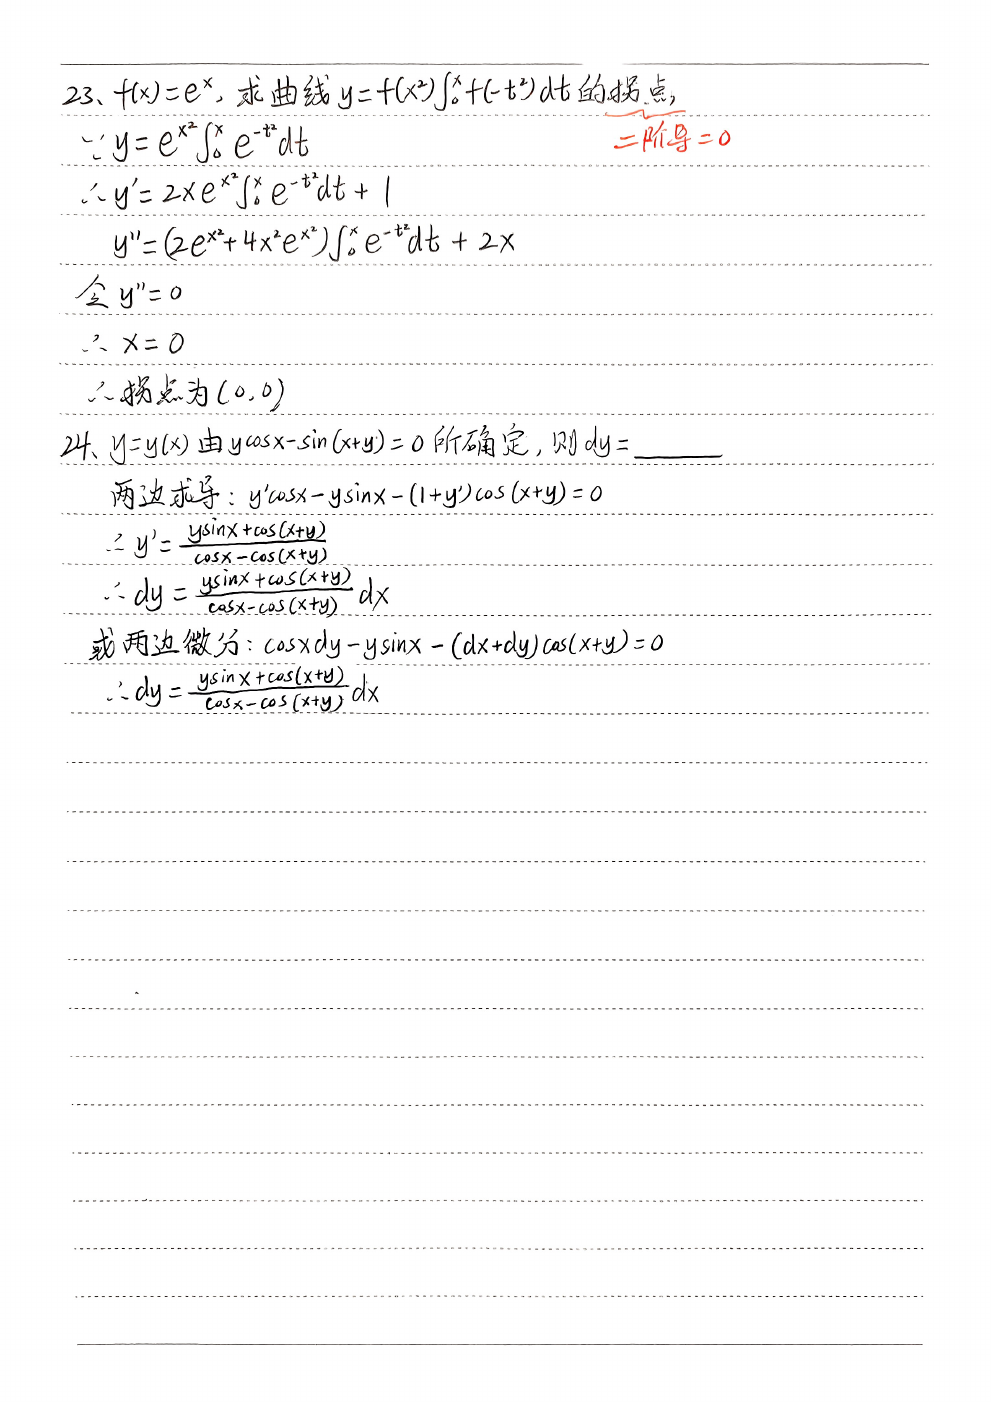 23、f(x)=eˣ, 求曲线 y=f(x²)∫₀ˣ f(-t²)dt 的拐点,
二阶导=0
∵ y=e^{x²}∫₀ˣ e^{-t²}dt
∴ y'=2xe^{x²}∫₀ˣ e^{-t²}dt + 1
y''=(2e^{x²}+4x²e^{x²})∫₀ˣ e^{-t²}dt + 2x
令 y''=0
∴ x=0
∴ 拐点为(0,0)
24、y=y(x) 由 ycosx-sin(x+y)=0 所确定, 则 dy=______
两边求导: y'cosx-ysinx-(1+y')cos(x+y)=0
∴ y'=\frac{ysinx+cos(x+y)}{cosx-cos(x+y)}
∴ dy=\frac{ysinx+cos(x+y)}{cosx-cos(x+y)}dx
或两边微分: cosxdy-ysinx-(dx+dy)cos(x+y)=0
∴ dy=\frac{ysinx+cos(x+y)}{cosx-cos(x+y)}dx